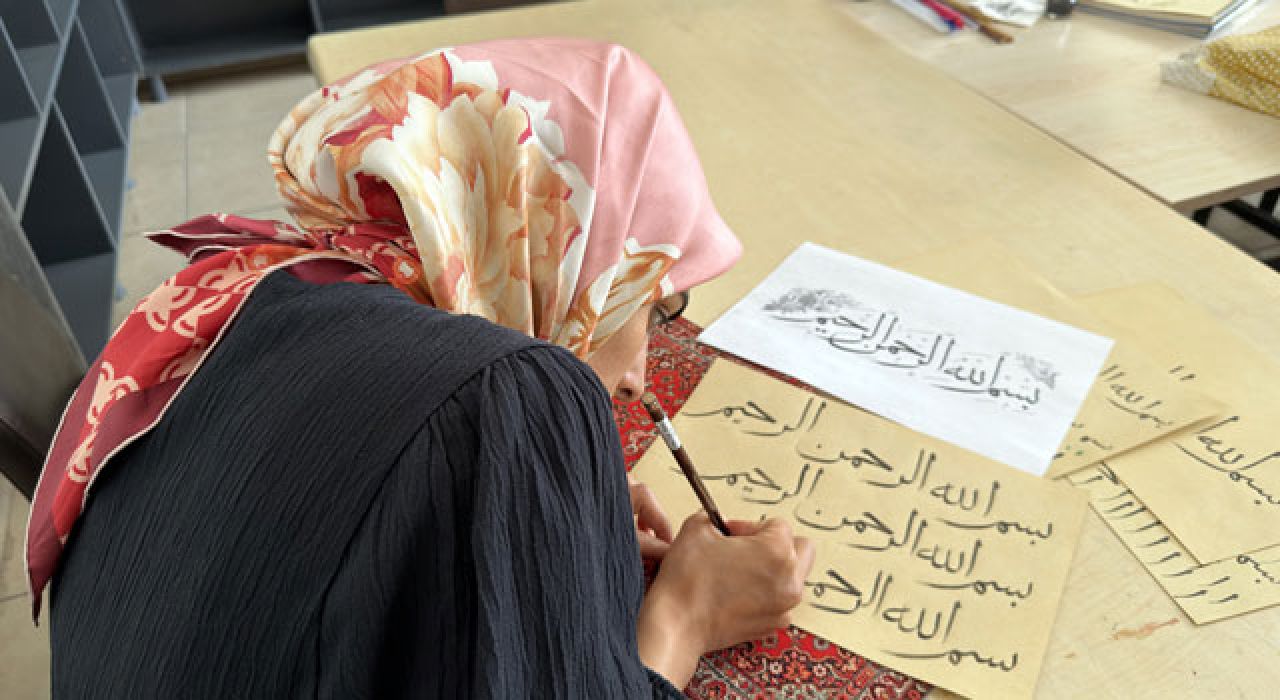 بسم الله الرحمن الرحيم
بسم الله الرحمن الرحيم
بسم الله الرحمن الرحيم
بسم الله
بسم الله
بسم الله
بسم